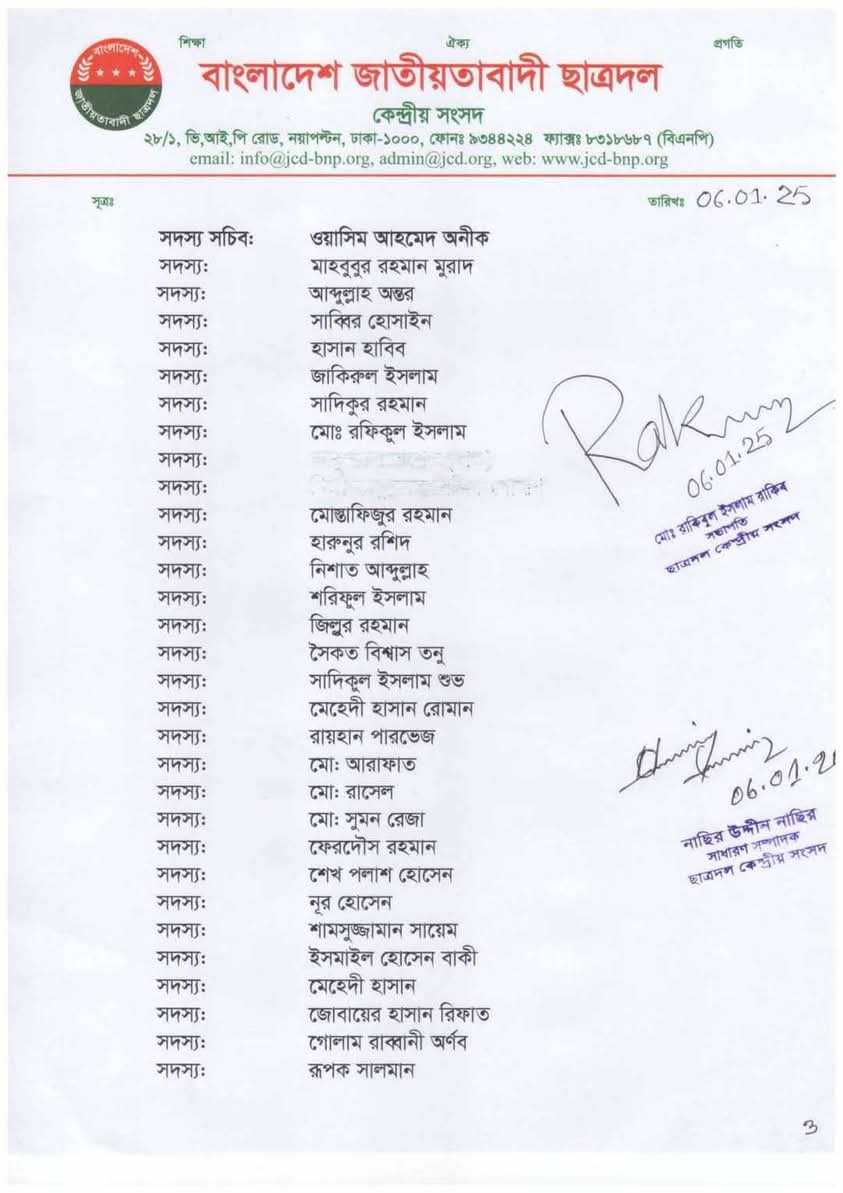 শিক্ষা ঐক্য প্রগতি
বাংলাদেশ জাতীয়তাবাদী ছাত্রদল
বাংলাদেশ জাতীয়তাবাদী ছাত্রদল
কেন্দ্রীয় সংসদ
২৮/১, ভি,আই,পি রোড, নয়াপল্টন, ঢাকা-১০০০, ফোনঃ ৯৩৪৪২২৪ ফ্যাক্সঃ ৮৩১৮৬৮৭ (বিএনপি)
email: info@jcd-bnp.org, admin@jcd.org, web: www.jcd-bnp.org
সূত্রঃ তারিখঃ 06.01.25
সদস্য সচিব: ওয়াসিম আহমেদ অনীক
সদস্য: মাহবুবুর রহমান মুরাদ
সদস্য: আব্দুল্লাহ অন্তর
সদস্য: সাব্বির হোসাইন
সদস্য: হাসান হাবিব
সদস্য: জাকিরুল ইসলাম
সদস্য: সাদিকুর রহমান
সদস্য: মোঃ রফিকুল ইসলাম
সদস্য:
সদস্য:
সদস্য: মোস্তাফিজুর রহমান
সদস্য: হারুনুর রশিদ
সদস্য: নিশাত আব্দুল্লাহ
সদস্য: শরিফুল ইসলাম
সদস্য: জিল্লুর রহমান
সদস্য: সৈকত বিশ্বাস তনু
সদস্য: সাদিকুল ইসলাম শুভ
সদস্য: মেহেদী হাসান রোমান
সদস্য: রায়হান পারভেজ
সদস্য: মো: আরাফাত
সদস্য: মো: রাসেল
সদস্য: মো: সুমন রেজা
সদস্য: ফেরদৌস রহমান
সদস্য: শেখ পলাশ হোসেন
সদস্য: নূর হোসেন
সদস্য: শামসুজ্জামান সায়েম
সদস্য: ইসমাইল হোসেন বাকী
সদস্য: মেহেদী হাসান
সদস্য: জোবায়ের হাসান রিফাত
সদস্য: গোলাম রাব্বানী অর্ণব
সদস্য: রূপক সালমান
06.01.25
মোঃ রাকিবুল ইসলাম রাকিব
সভাপতি
ছাত্রদল কেন্দ্রীয় সংসদ
06.01.2
নাছির উদ্দীন নাছির
সাধারণ সম্পাদক
ছাত্রদল কেন্দ্রীয় সংসদ
3